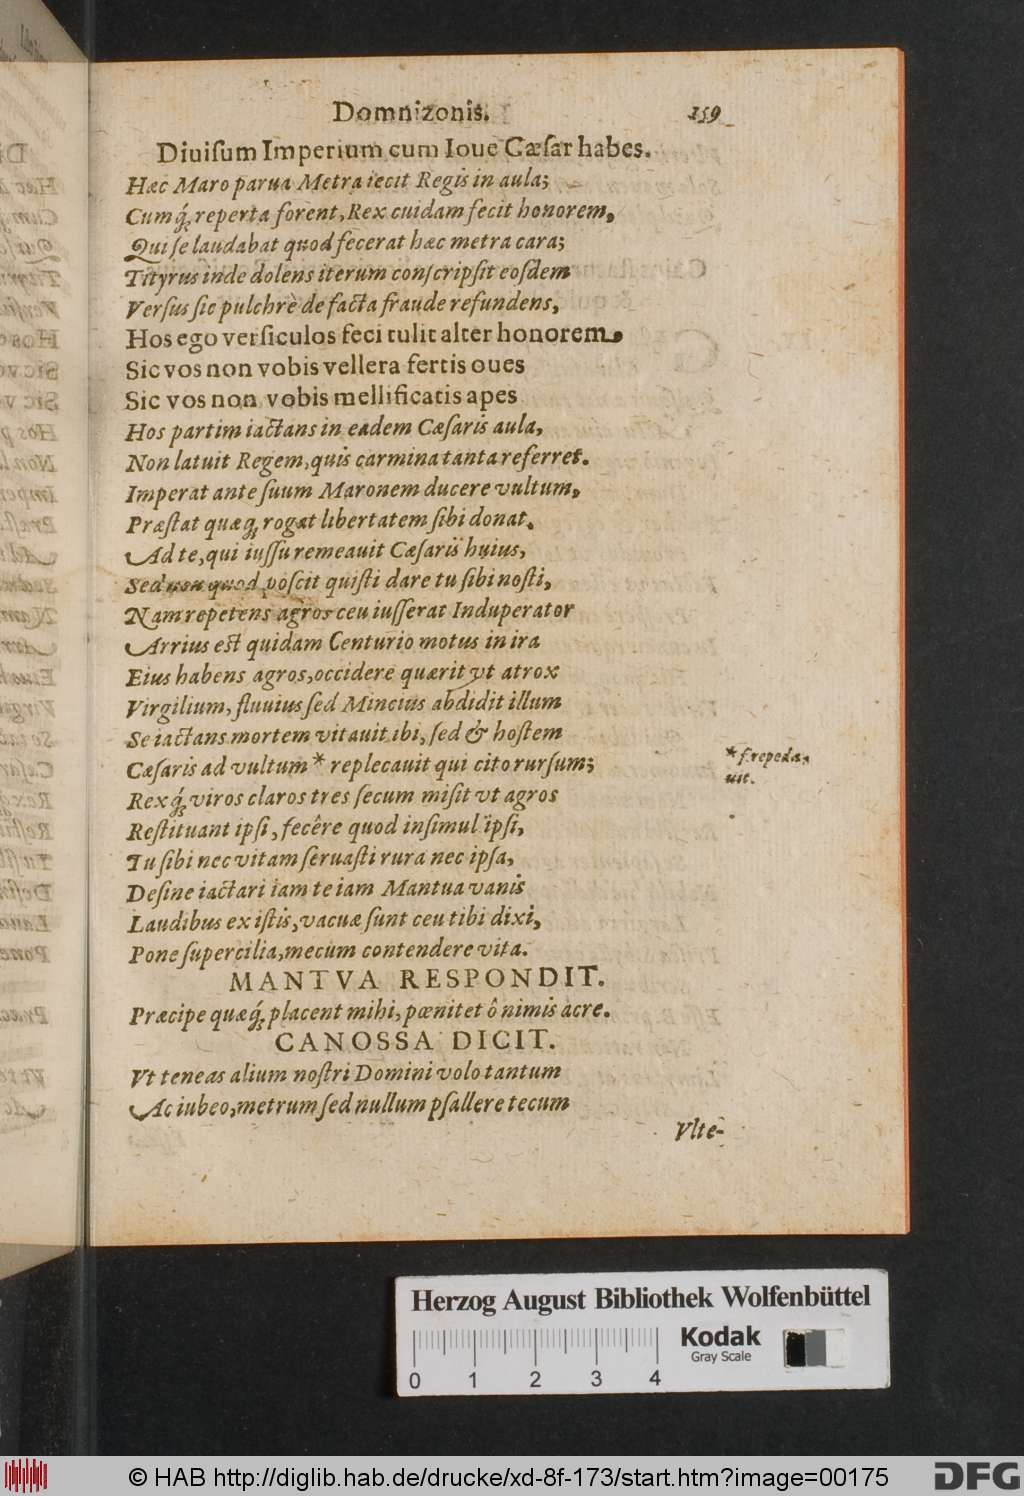 Domnizonis. 159
Diuiſum Imperium cum Ioue Cæſar habes.
Hæc Maro parua Metra iecit Regis in aula;
Cumq́; reperta forent, Rex cuidam fecit honorem,
Qui ſe laudabat quod fecerat hæc metra cara;
Tityrus inde dolens iterum conſcripſit eoſdem
Verſus ſic pulchrè de facta fraude refundens,
Hos ego verſiculos feci tulit alter honorem,
Sic vos non vobis vellera fertis oues
Sic vos non vobis mellificatis apes
Hos partim iactans in eadem Cæſaris aula,
Non latuit Regem, quis carmina tanta referret.
Imperat ante ſuum Maronem ducere vultum,
Præſtat quæq; rogat libertatem ſibi donat.
Ad te, qui iuſſu remeauit Cæſaris huius,
Sed non quod poſcit quiſti dare tu ſibi noſti,
Nam repetens agros ceu iuſſerat Induperator
Arrius est quidam Centurio motus in ira
Eius habens agros, occidere quærit vt atrox
Virgilium, fluuius ſed Mincius abdidit illum
Se iactans mortem vitauit ibi, ſed & hoſtem
Cæſaris ad vultum * replecauit qui cito rurſum;
* f. repeda,
uit.
Rex q́; viros claros tres ſecum miſit vt agros
Reſtituant ipſi, fecêre quod inſimul ipſi,
Tu ſibi nec vitam ſeruaſti rura nec ipſa,
Deſine iactari iam te iam Mantua vanis
Laudibus ex iſtis, vacuæ ſunt ceu tibi dixi,
Pone ſupercilia, mecum contendere vita.
MANTVA RESPONDIT.
Præcipe quæq́; placent mihi, pœnitet ô nimis acre.
CANOSSA DICIT.
Vt teneas alium noſtri Domini volo tantum
Ac iubeo, metrum ſed nullum pſallere tecum
Vlte-
Herzog August Bibliothek Wolfenbüttel
Kodak
Gray Scale
0 1 2 3 4
© HAB http://diglib.hab.de/drucke/xd-8f-173/start.htm?image=00175
DFG